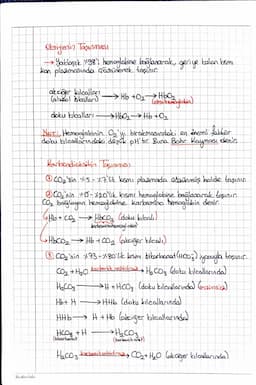 Oksijenin Taşınması
→ Yaklaşık %98'i hemoglobine bağlanarak, geriye kalan kısmı
kan plazmasında çözünerek taşınır.
akciğer kılcalları → Hb + O₂ → HbO₂
(alveol kılcalları) (oksihemoglobin)
doku kılcalları → HbO₂ → Hb + O₂
Not: Hemoglobinin O₂'yi bırakmasındaki en önemli faktör
doku kılcallarındaki düşük pH'tır. Buna Bohr Kayması denir.
Karbondioksitin Taşınması
① CO₂'nin %5-%7'lik kısmı plazmada çözünmüş halde taşınır.
② CO₂'nin %15-%20'lik kısmı hemoglobine bağlanarak taşınır.
CO₂ bağlayan hemoglobine, karbamino hemoglobin denir.
Hb + CO₂ → HbCO₂ (doku kılcalı)
karbaminohemoglobin
HbCO₂ → Hb + CO₂ (akciğer kılcalı)
③ CO₂'nin %73-%80'lik kısmı bikarbonat (HCO₃⁻) iyonuyla taşınır.
CO₂ + H₂O karbonik anhidraz → H₂CO₃ (doku kılcallarında)
H₂CO₃ → H + HCO₃ (doku kılcallarında)
Hb + H → HHb (doku kılcallarında)
HHb → H + Hb (akciğer kılcallarında)
HCO₃ + H → H₂CO₃
(bikarbonat) (karbonik asit)
H₂CO₃ karbonik anhidraz → CO₂ + H₂O (akciğer kılcallarında)